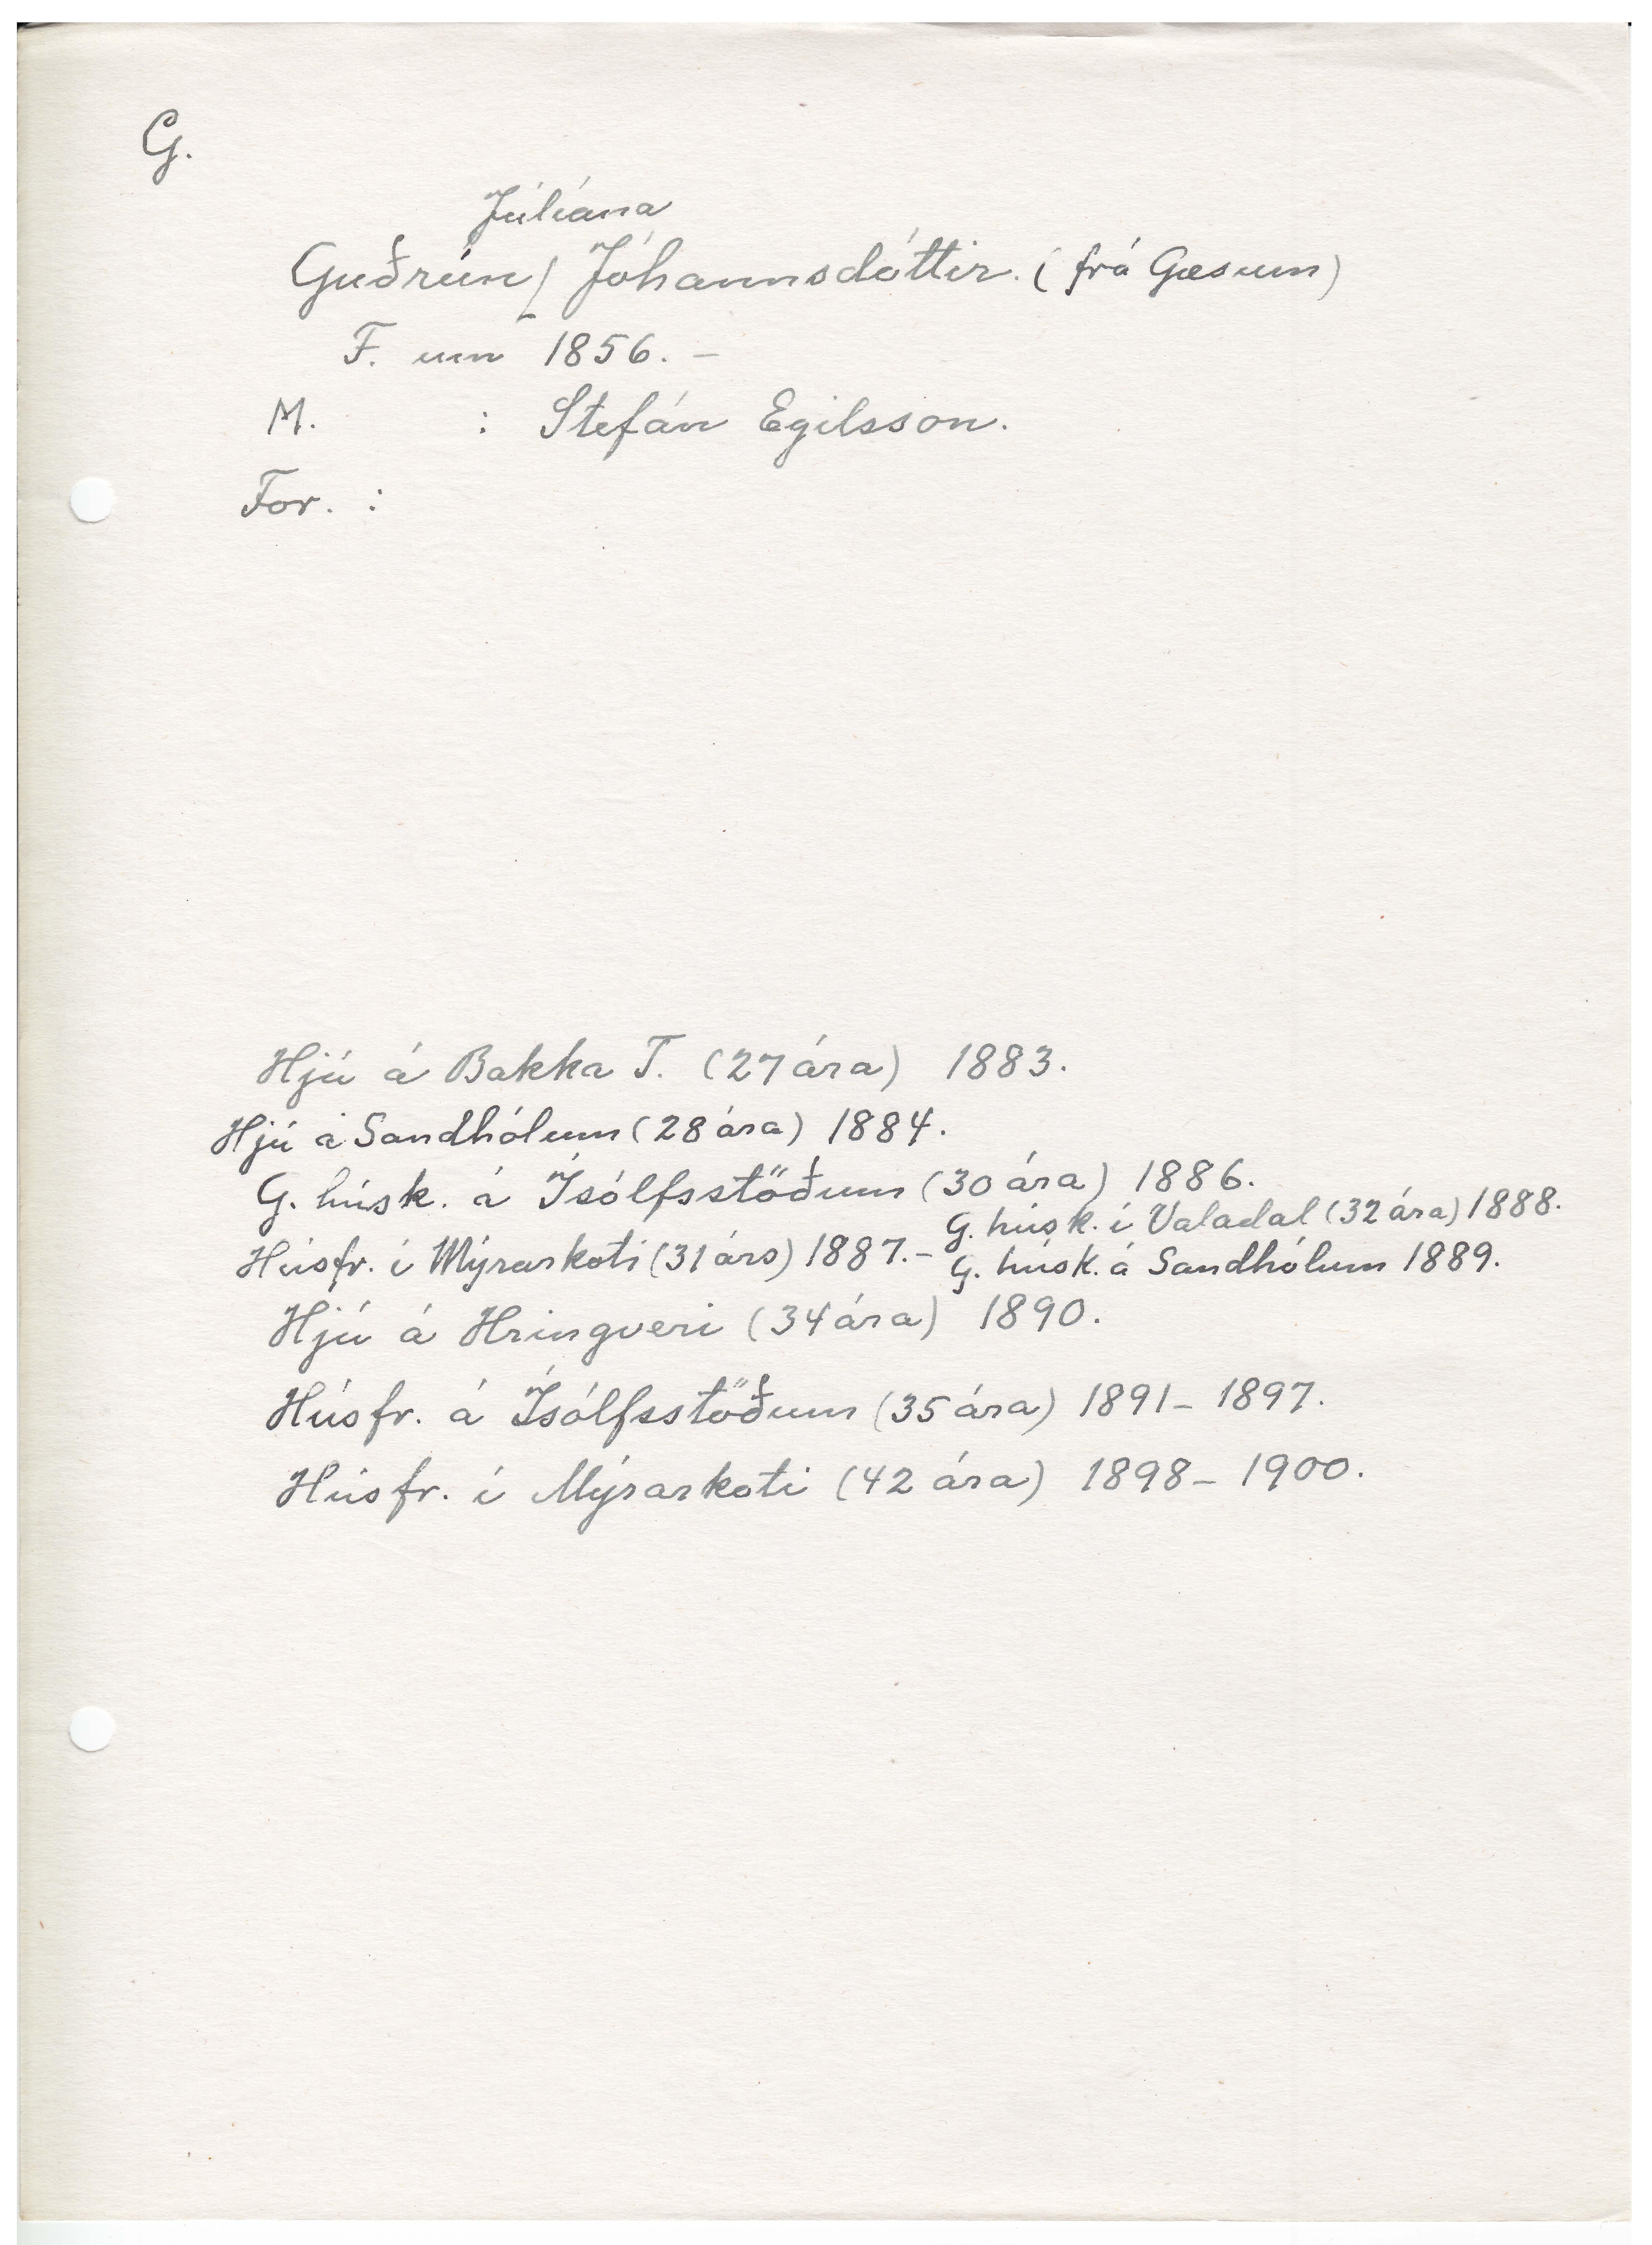 G.
Júlíana
Guðrún / Jóhannsdóttir. (frá Gæsum)
F. um 1856. –
M. : Stefán Egilsson.
For. :
Hjú á Bakka T. (27 ára) 1883.
Hjú á Sandhólum (28 ára) 1884.
G. húsk. á Ísólfsstöðum (30 ára) 1886.
G. húsk. í Valadal (32 ára) 1888.
Húsfr. í Mýrarkoti (31 árs) 1887. –
G. húsk. á Sandhólum 1889.
Hjú á Hringveri (34 ára) 1890.
Húsfr. á Ísólfsstöðum (35 ára) 1891 – 1897.
Húsfr. í Mýrarkoti (42 ára) 1898 – 1900.